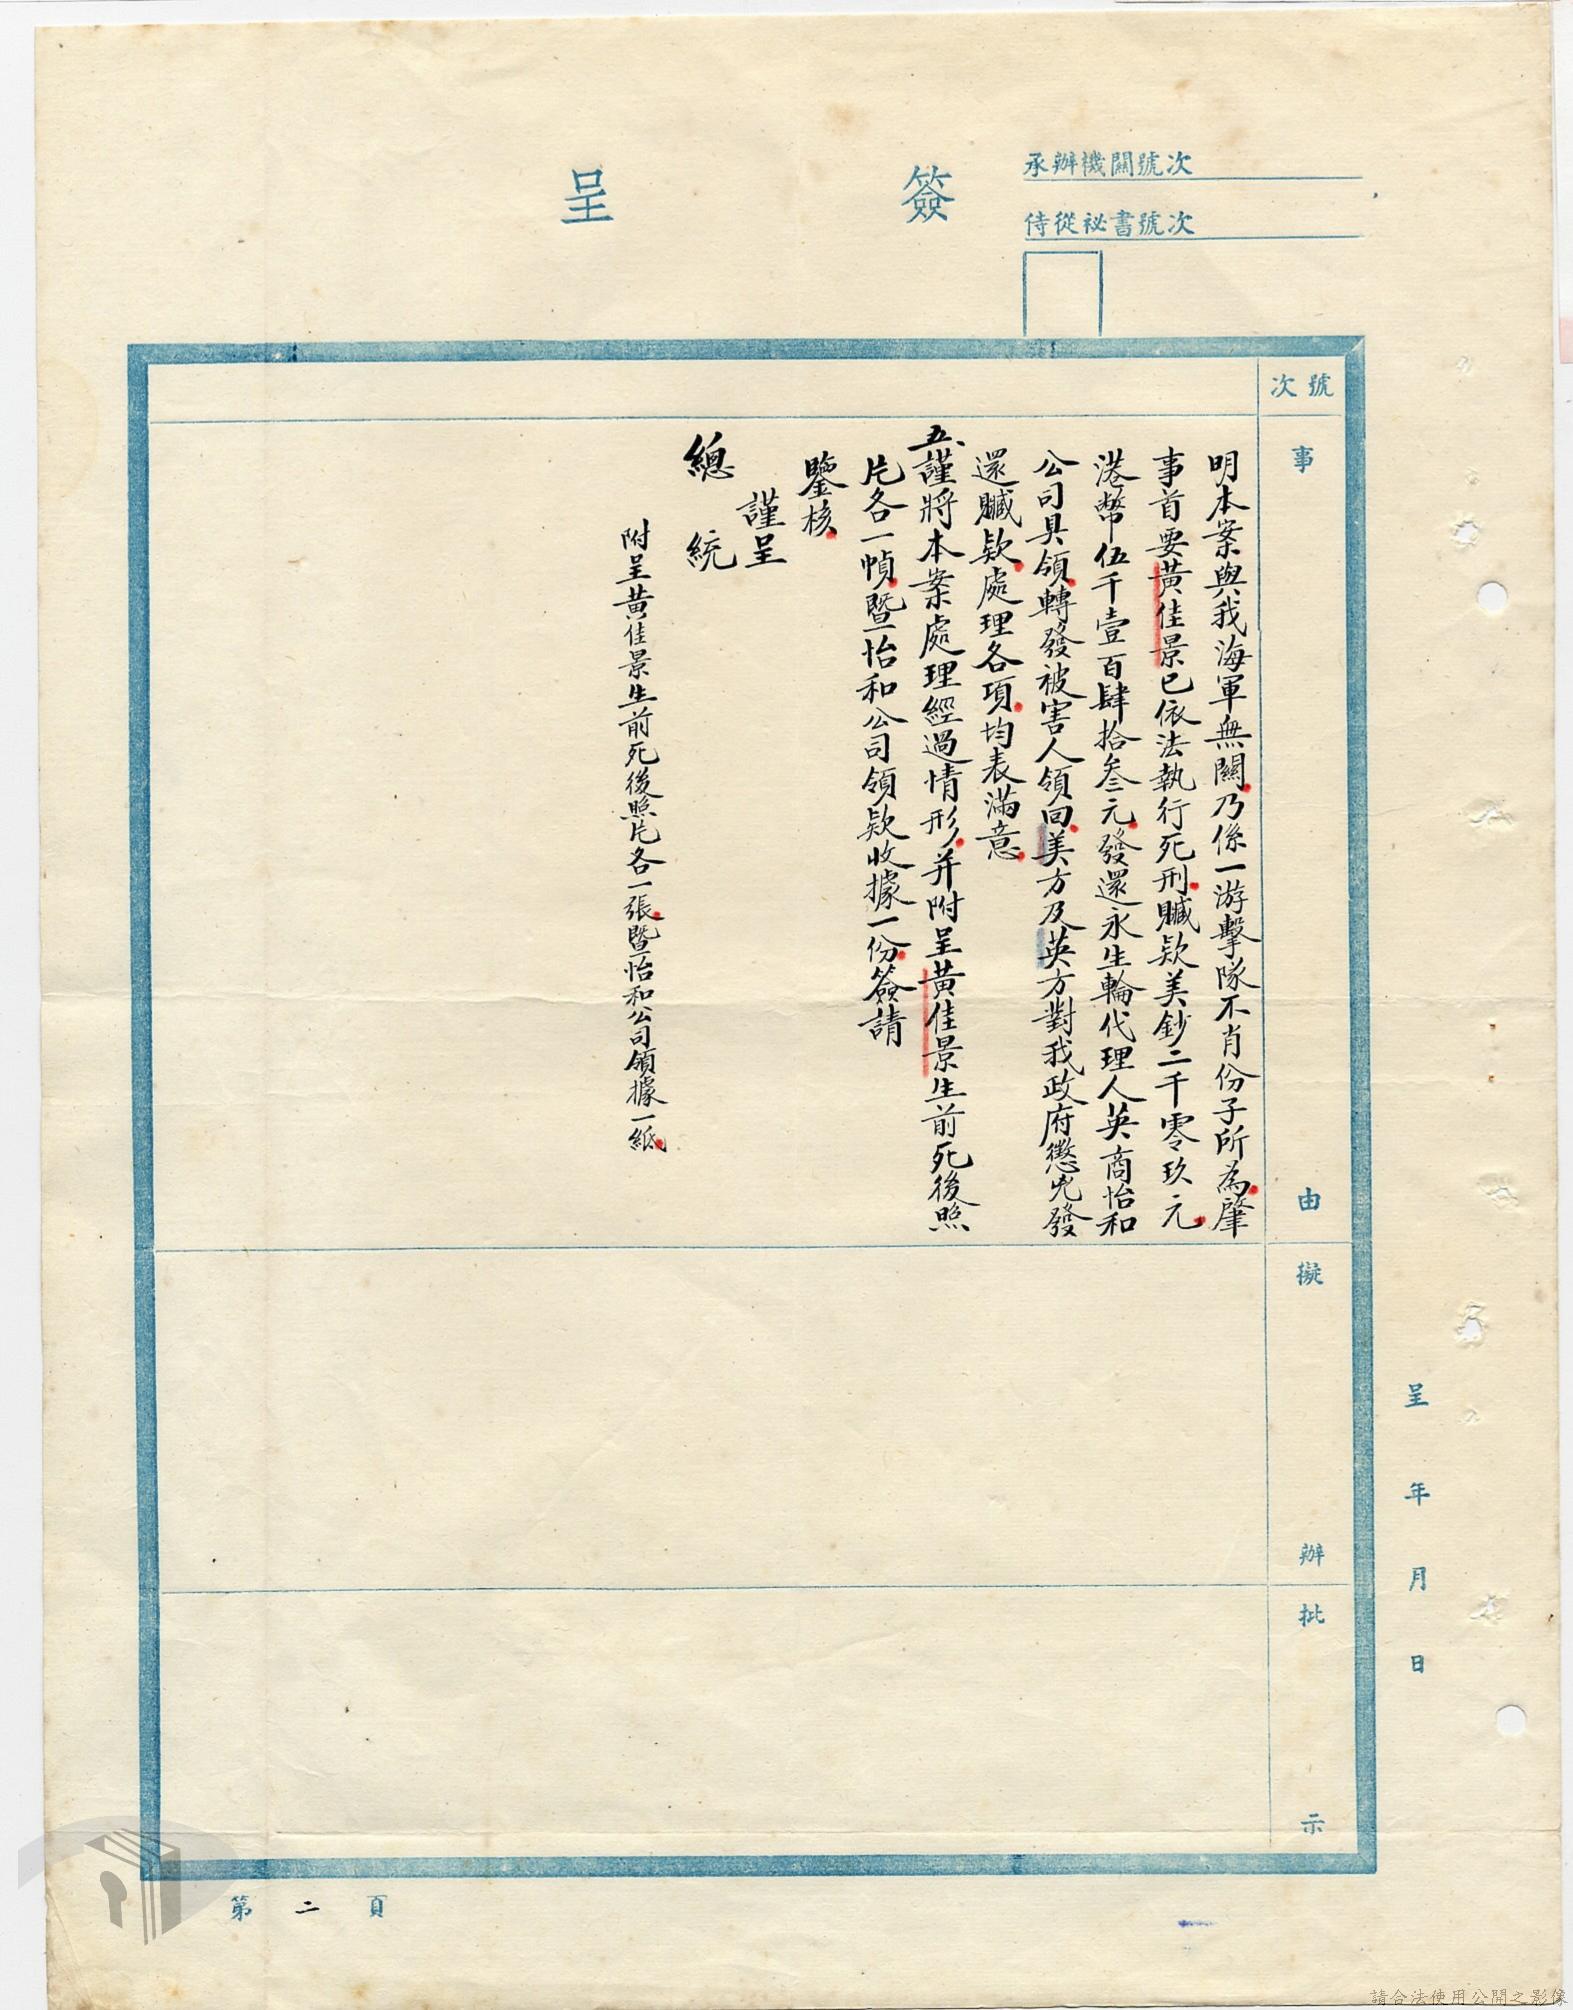 承辦機關號次
侍從祕書號次
簽呈
號次
事由
明本案與我海軍無關乃係一游擊隊不肖份子所為肇
事首要黃佳景已依法執行死刑贓欵美鈔二千零玖元
港幣伍千壹百肆拾叁元發還永生輪代理人英商怡和
公司具領轉發被害人領回美方及英方對我政府懲兇發
還贓欵處理各項均表滿意
五、謹將本案處理經過情形并附呈黃佳景生前死後照
片各一幀暨怡和公司領欵收據一份簽請
鑒核
謹呈
總統
附呈黃佳景生前死後照片各一張暨怡和公司領據一紙
擬辦
批示
呈年月日
第二頁
請合法使用公開之影像